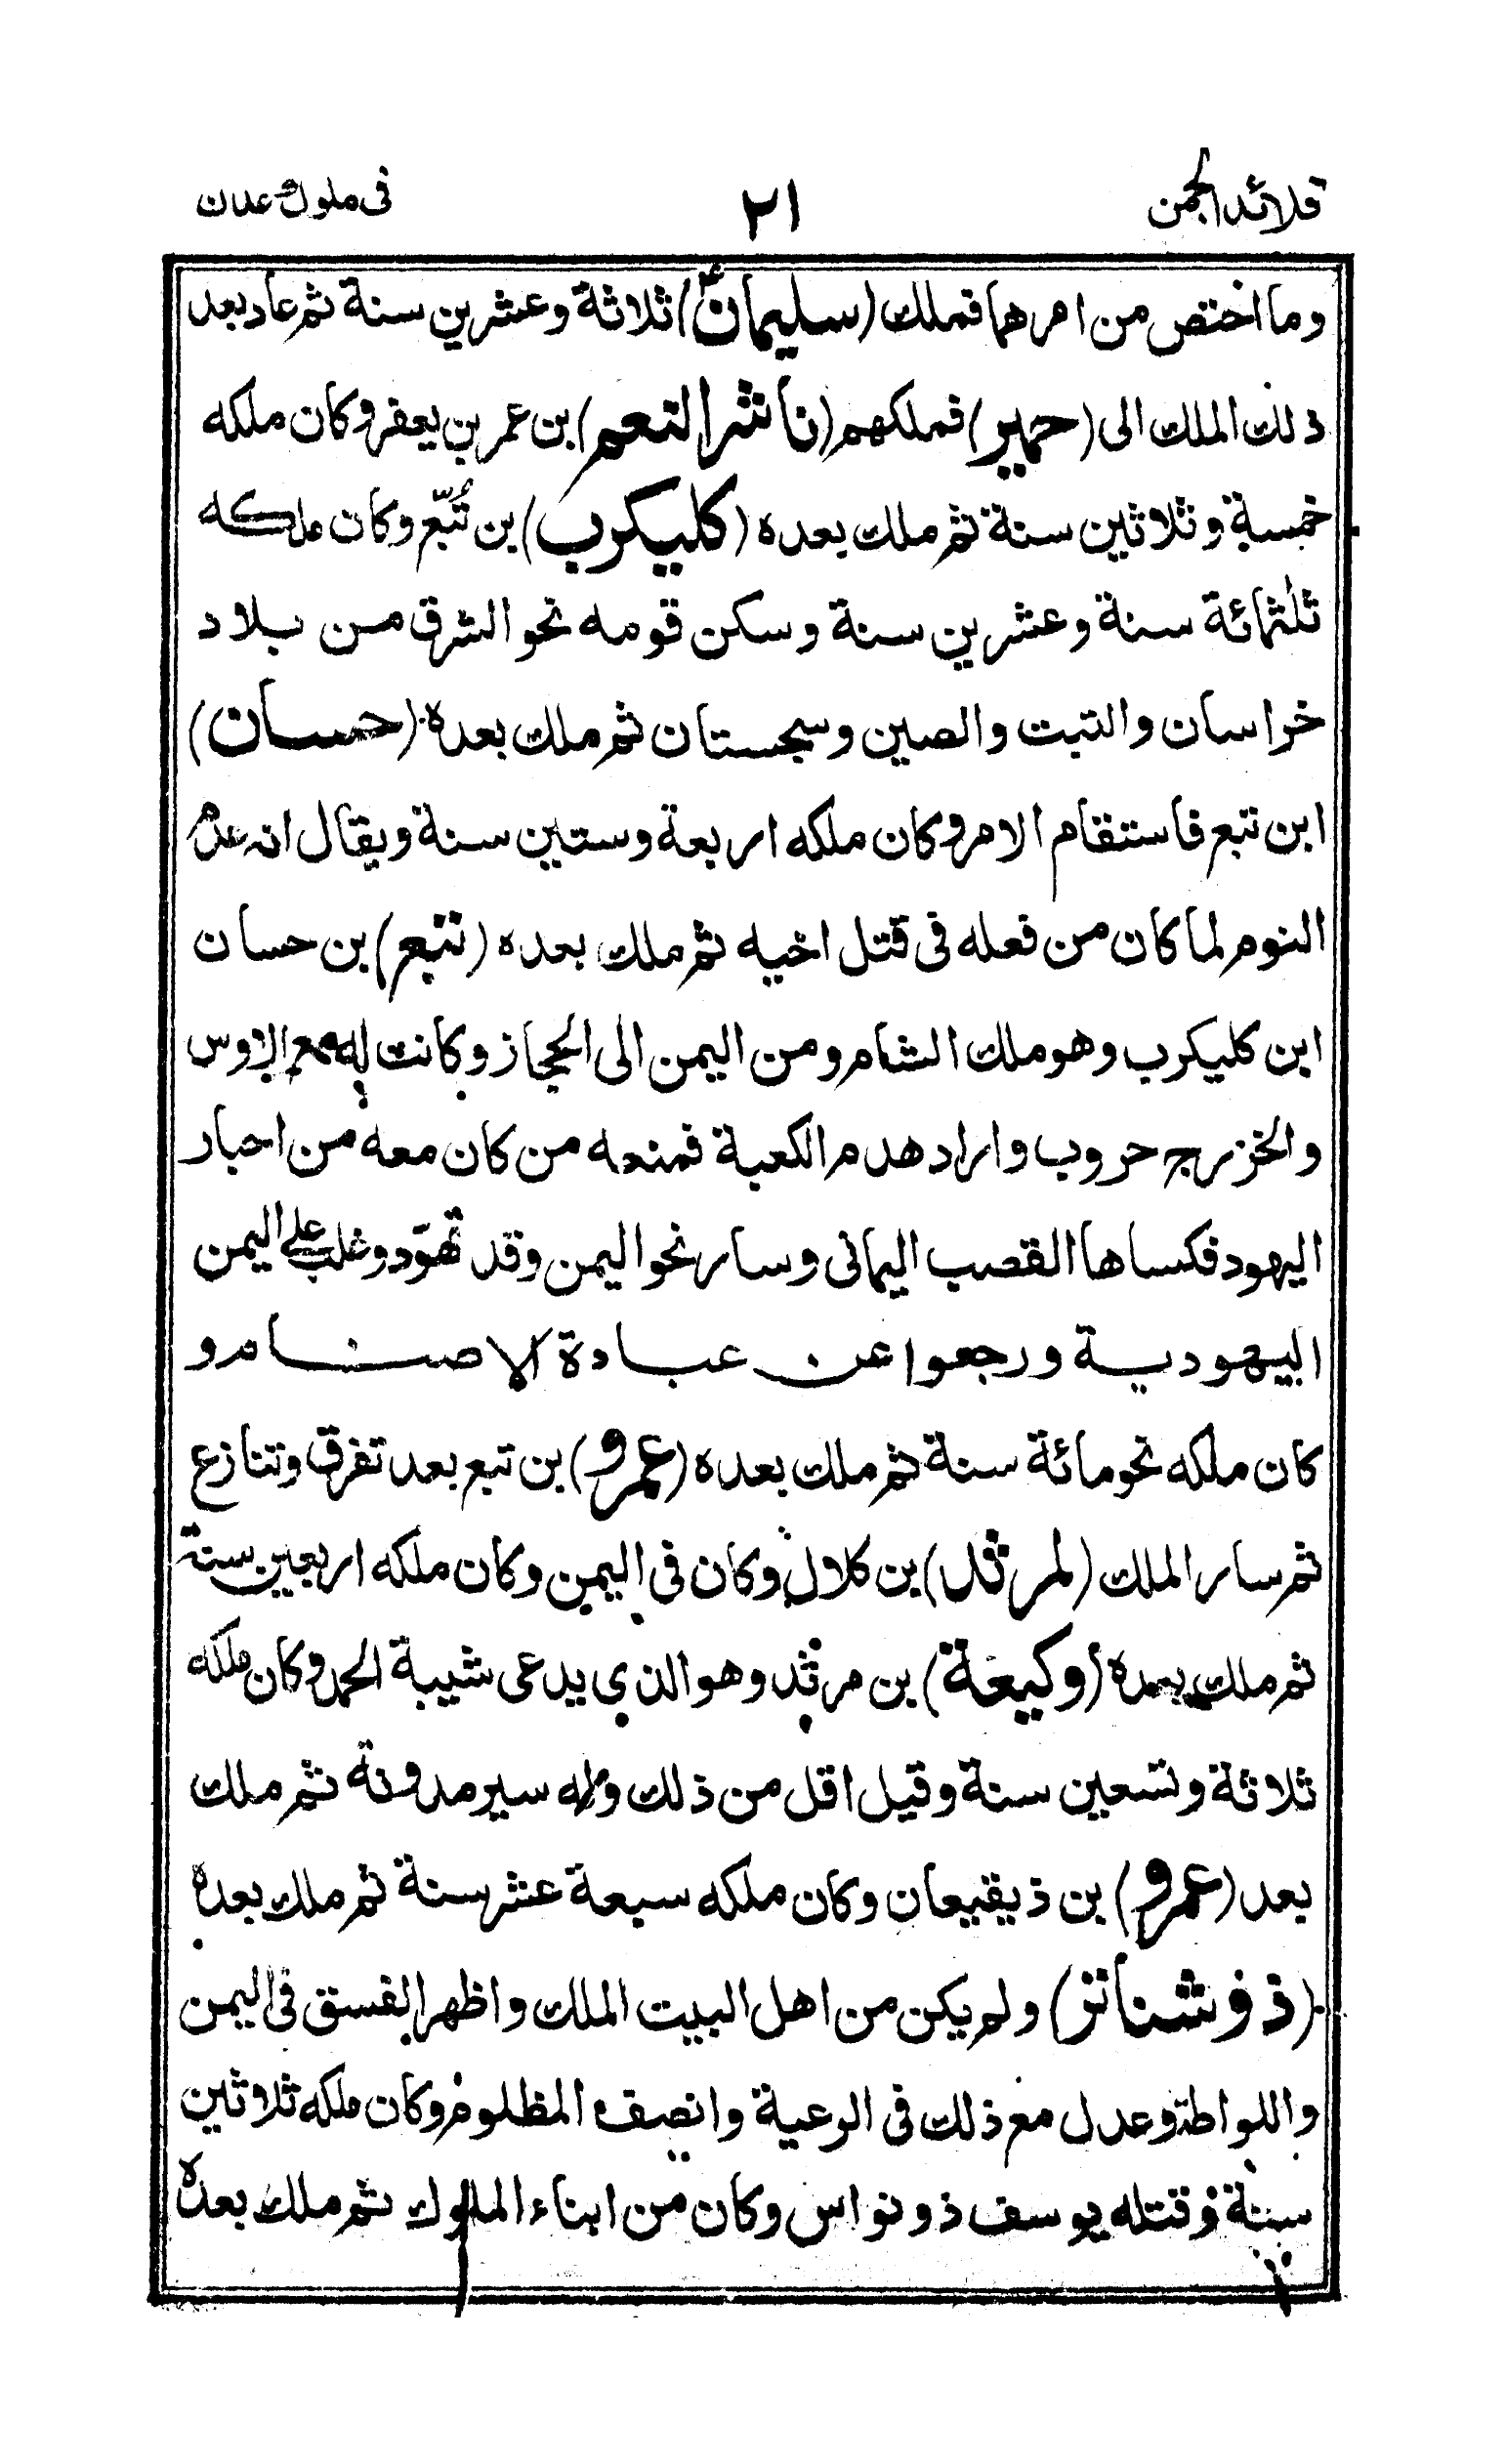 قلائد الجمن ٢١ فى ملوك عدن
وما اختص من امرهما فملك (سليمانؑ) ثلاثة وعشرين سنة ثم عاد بعد
ذلك الملك الى (حمير) فملكهم (ناشر النعم) بن عمر بن يعفر وكان ملكه
خمسة وثلاثين سنة ثم ملك بعده (كليكرب) بن تُبّع وكان ملكه
ثلثمائة سنة وعشرين سنة وسكن قومه نحو الشرق من بلاد
خراسان والتبت والصين وسجستان ثم ملك بعده (حسان)
ابن تبع فاستقام الامر وكان ملكه اربعة وستين سنة ويقال انه عدم
النوم لما كان من فعله فى قتل اخيه ثم ملك بعده (تبع) بن حسان
ابن كليكرب وهو ملك الشام ومن اليمن الى الحجاز وكانت له مع الاوس
والخزرج حروب واراد هدم الكعبة فمنعه من كان معه من احبار
اليهود فكساها القصب اليمانى وسار نحو اليمن وقد تهوّد وغلب على اليمن
اليهودية ورجعوا عن عبادة الاصنام و
كان ملكه نحو مائة سنة ثم ملك بعده (عمرو) بن تبع بعد تفرق وتنازع
ثم سار الملك (لمرثل) بن كلال وكان فى اليمن وكان ملكه اربعين سنة
ثم ملك بعده (وكيعة) بن مرثد وهو الذي يدعى شيبة الحمد وكان ملكه
ثلاثة وتسعين سنة وقيل اقل من ذلك وله سير مدونة ثم ملك
بعد (عمرو) بن ذيقيعان وكان ملكه سبعة عشر سنة ثم ملك بعده
(ذو شناتر) ولم يكن من اهل البيت الملك واظهر الفسق فى اليمن
واللواطة وعدل مع ذلك فى الرعية وانصف المظلوم وكان ملكه ثلاثين
سنة وقتله يوسف ذو نواس وكان من ابناء الملوك ثم ملك بعده